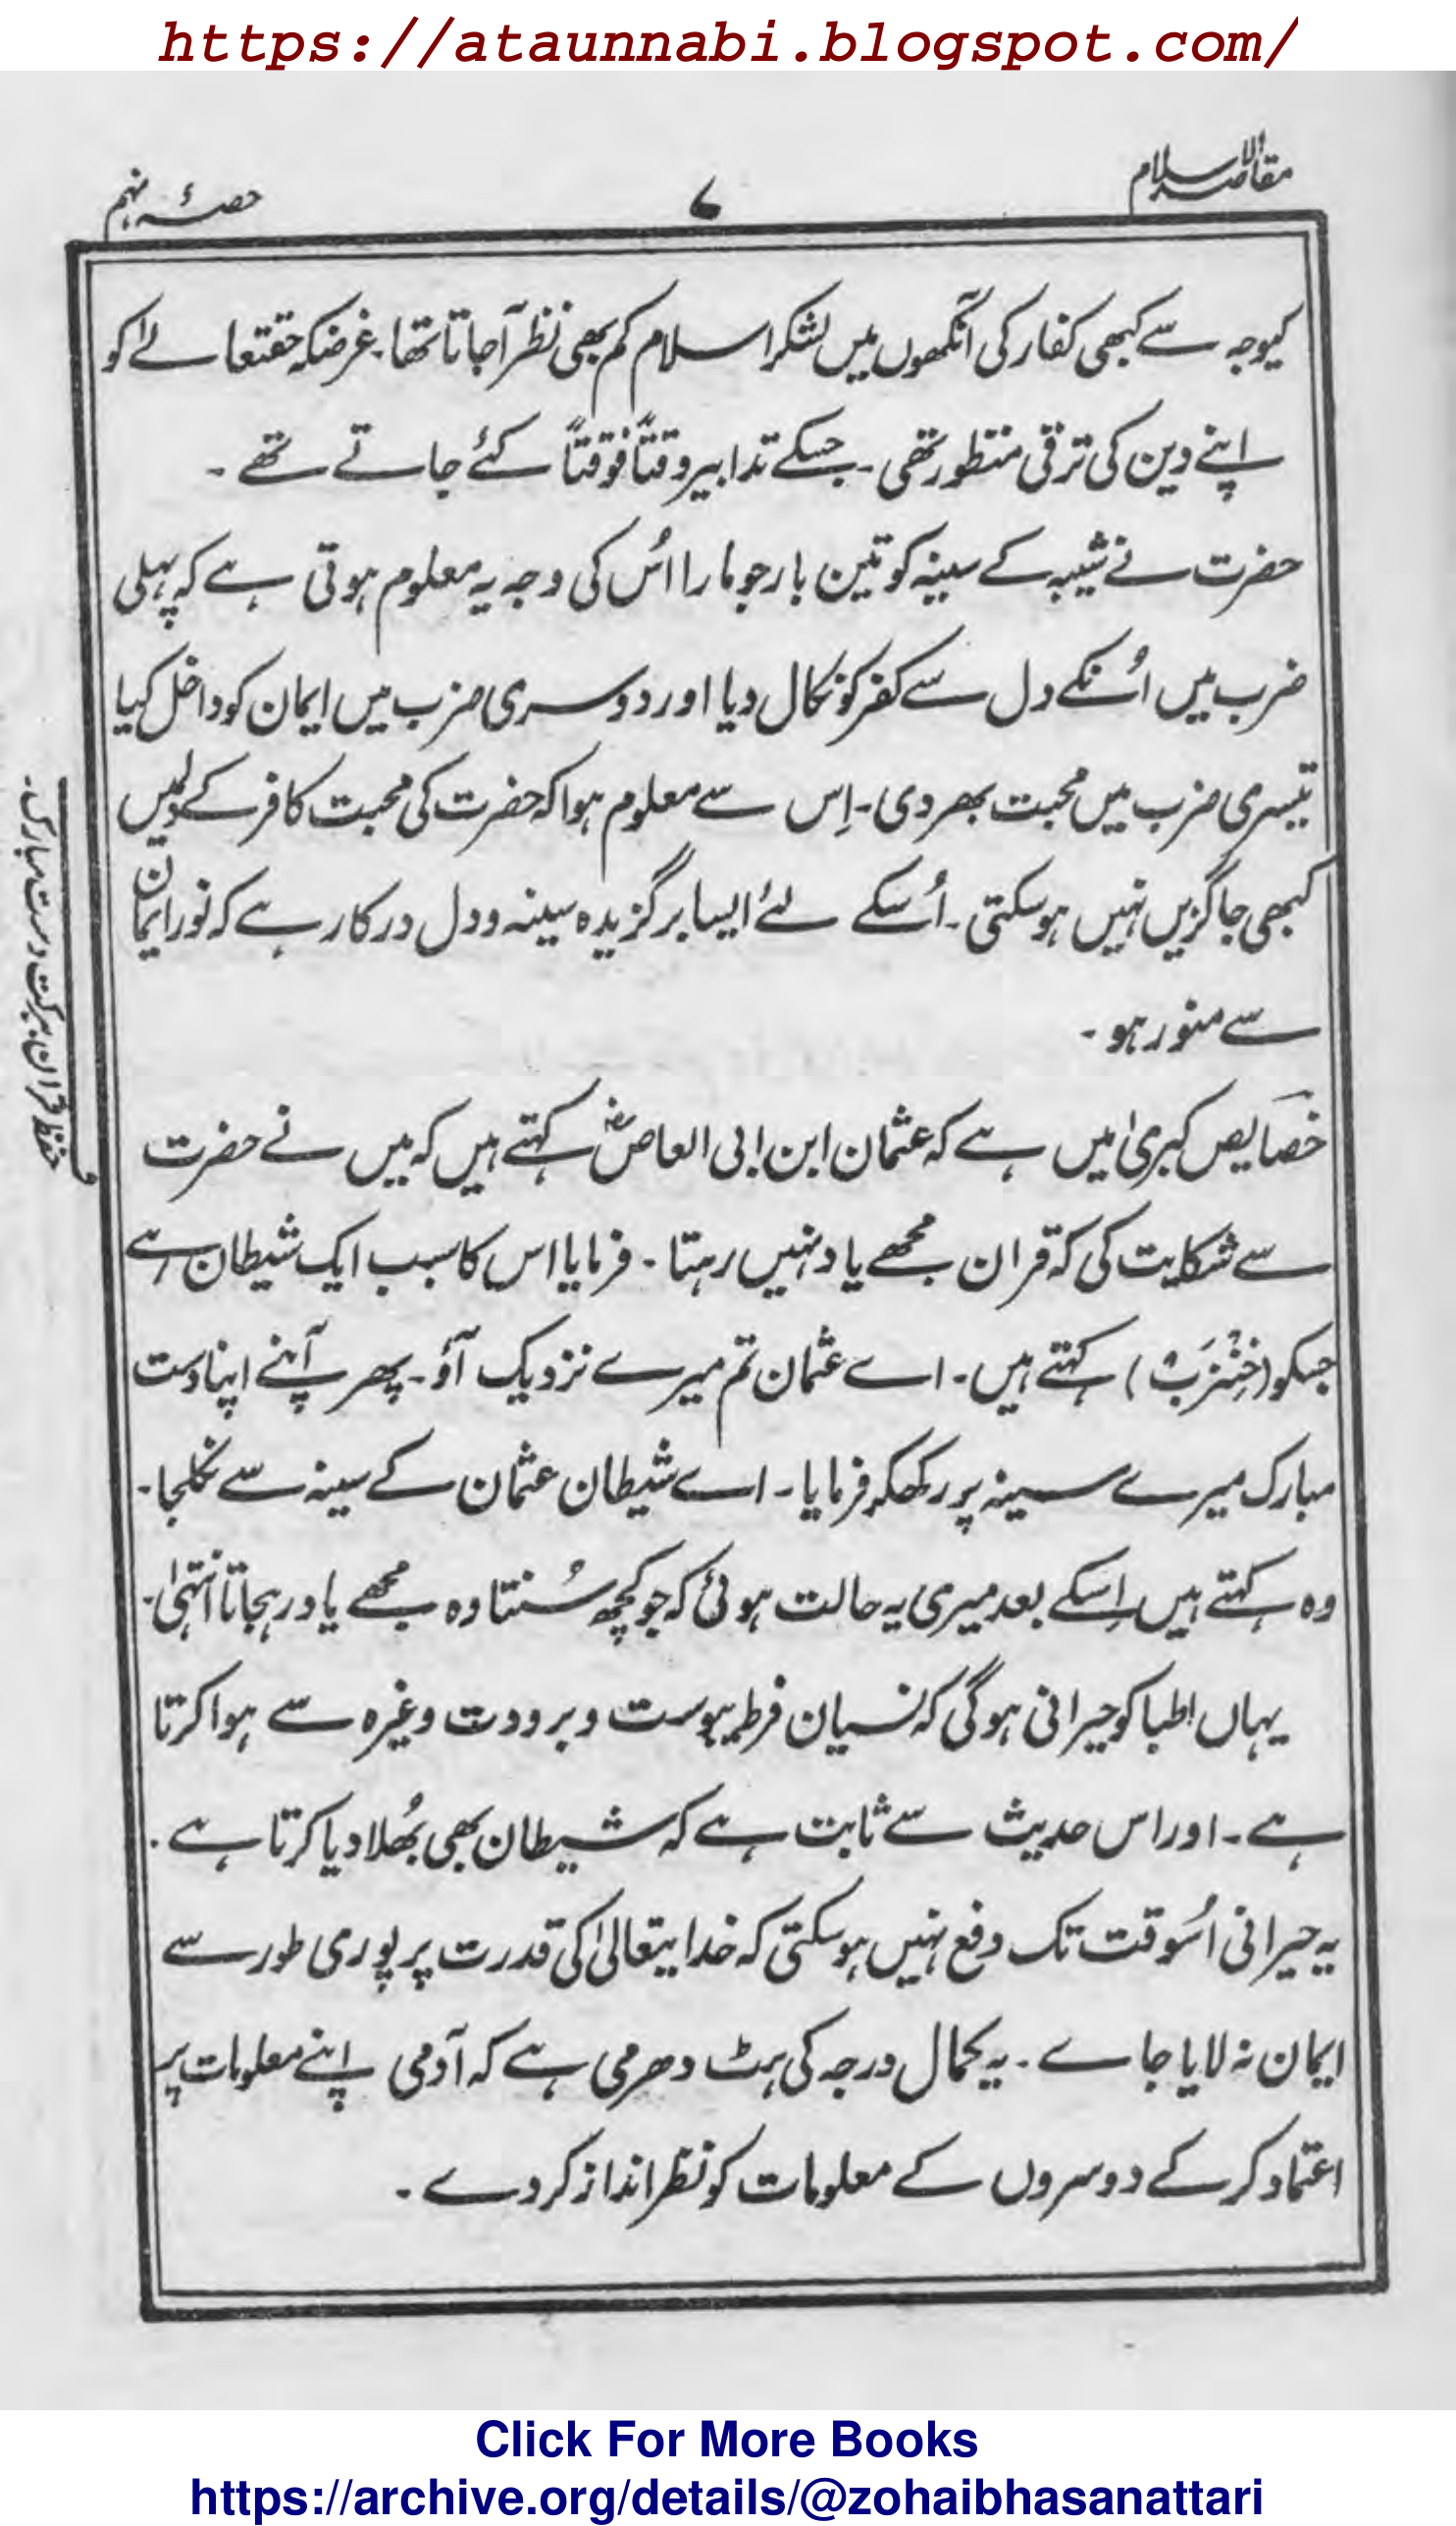 https://ataunnabi.blogspot.com/
مقاصد الاسلام
۷
حصۂ نہم
کیوجہ سے کبھی کفار کی آنکھوں میں لشکر اسلام کم بھی نظر آجاتا تھا۔ غرضکہ حقتعالےٰ کو
اپنے دین کی ترقی منظور تھی۔ جسکے تدابیر وقتاً فوقتاً کئے جاتے تھے۔
حضرت نے شیبہ کے سینہ کو تین بار جو مارا اُس کی وجہ یہ معلوم ہوتی ہے کہ پہلی
ضرب میں اُنکے دل سے کفر کو نکال دیا اور دوسری ضرب میں ایمان کو داخل کیا
تیسری ضرب میں محبت بھر دی۔ اِس سے معلوم ہوا کہ حضرت کی محبت کافر کے دلمیں
کبھی جاگزیں نہیں ہوسکتی۔ اُسکے لئے ایسا برگزیدہ سینہ ودل درکار ہے کہ نور ایمان
سے منور ہو۔
خصایص کبریٰ میں ہے کہ عثمان ابن ابی العاصؓ کہتے ہیں کہ میں نے حضرت
سے شکایت کی کہ قران مجھے یاد نہیں رہتا۔ فرمایا اس کا سبب ایک شیطان ہے
جسکو (خِنْزَبْ) کہتے ہیں۔ اے عثمان تم میرے نزدیک آؤ۔ پھر آپنے اپنا دست
مبارک میرے سینہ پر رکھکر فرمایا۔ اے شیطان عثمان کے سینہ سے نکلجا۔
وہ کہتے ہیں اِسکے بعد میری یہ حالت ہوئی کہ جو کچھ سُنتا وہ مجھے یاد رہجاتا انتہیٰ۔
یہاں اطبا کو حیرانی ہوگی کہ نسیان فرط یبوست و برودت وغیرہ سے ہوا کرتا
ہے۔ اور اس حدیث سے ثابت ہے کہ شیطان بھی بُھلا دیا کرتا ہے۔
یہ حیرانی اُسوقت تک دفع نہیں ہوسکتی کہ خدایتعالیٰ کی قدرت پر پوری طور سے
ایمان نہ لایا جاے۔ یہ کمال درجہ کی ہٹ دھرمی ہے کہ آدمی اپنے معلومات پر
اعتماد کرکے دوسروں کے معلومات کو نظر انداز کردے۔
حفظ قرآن ببرکت دست مبارک۔
Click For More Books
https://archive.org/details/@zohaibhasanattari